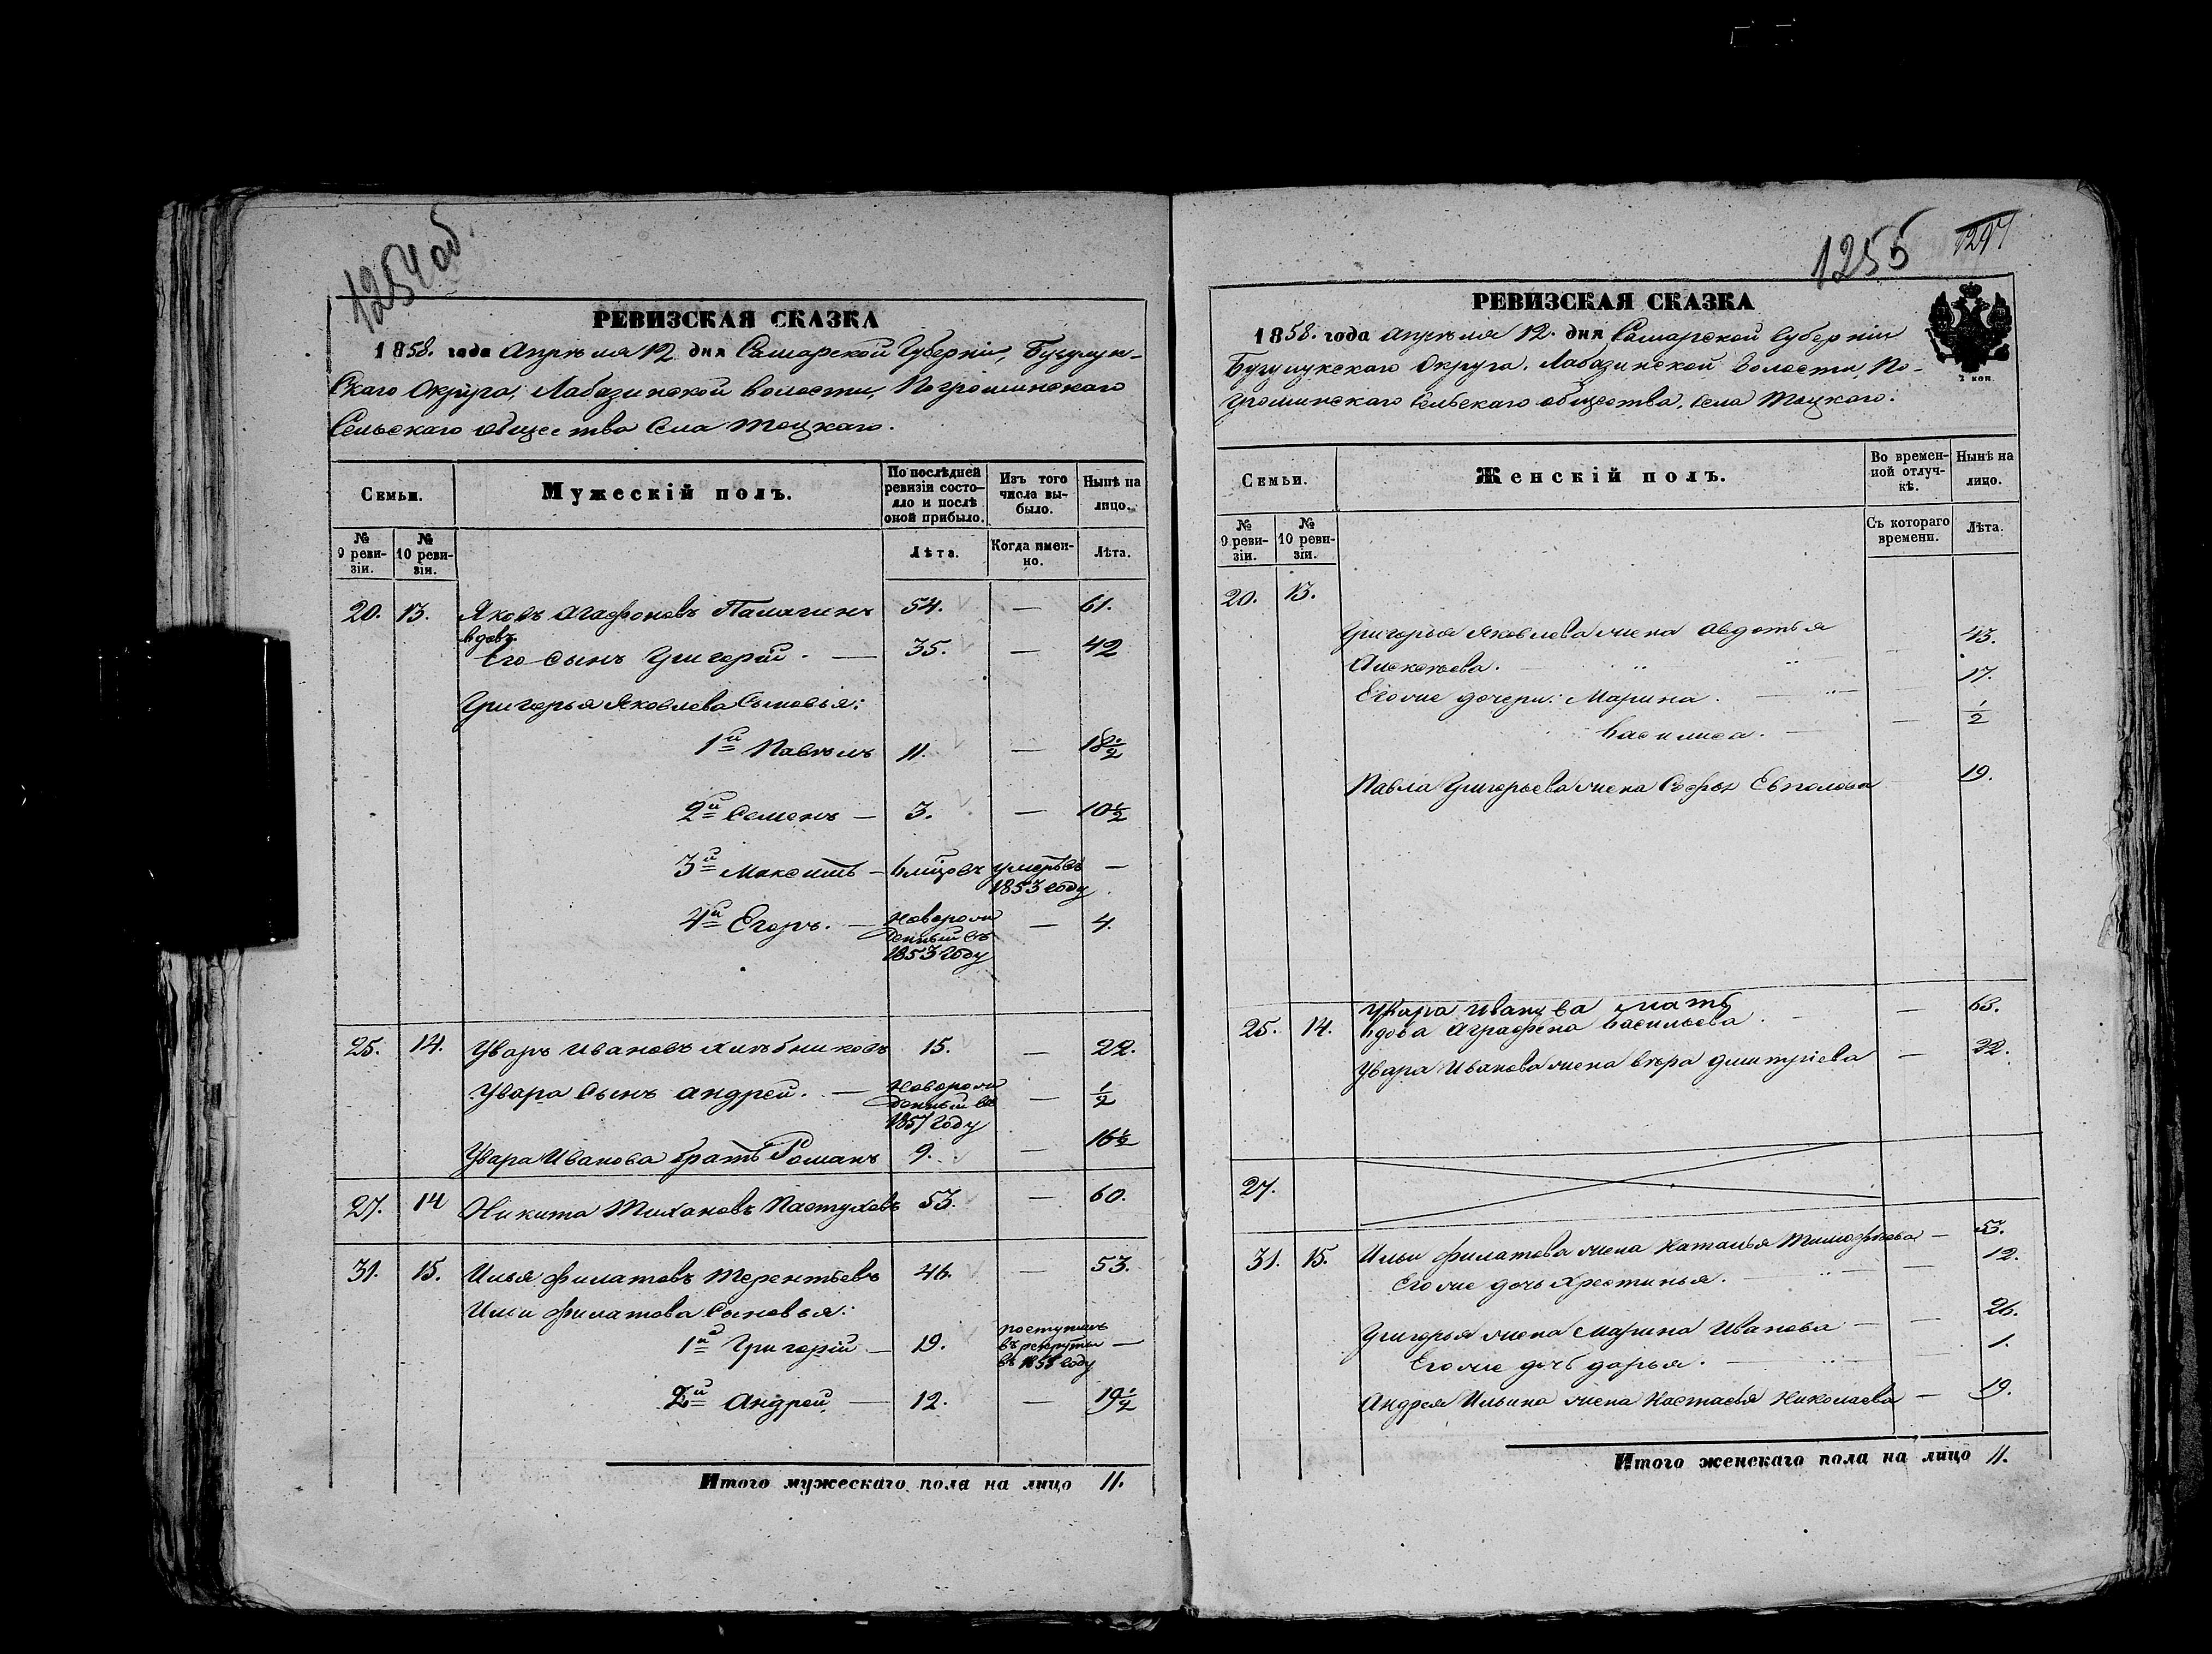 1254 об.
РЕВИЗСКАЯ СКАЗКА
1858. года Апрѣля 12 дня Самарской Губерніи, Бузулук-
скаго Округа, Лабазинской волости, Погроминскаго
Сельскаго общества Села Тоцкаго.
Семьи.
Мужескій полъ.
По послѣдней ревизіи состо-яло и послѣ оной прибыло.
Изъ того числа вы-было.
Нынѣ на лицо.
№ 9 реви-зіи.
№ 10 реви-зіи.
Лѣта.
Когда имен-но.
Лѣта.
20. 13. Яковъ Агафоновъ Палагинъ 54. — 61.
вдовъ
Его сынъ Григорій. — 35. — 42
Григорья Яковлева Сыновья:
1й Павелъ 11. — 18½
2й Семенъ — 3. — 10½
3й Максимъ — 6 мцовъ умеръ въ —
1853 году
4й Егоръ. — Новорож — 4.
денный въ
1853 году
25. 14. Уваръ Ивановъ Хлѣбниковъ 15. — 22.
Увара Сынъ Андрей. — Новорож — ½
денный въ
1857 году
Увара Иванова братъ Романъ 9. — 16½
27. 14 Никита Тихановъ Пастуховъ 53. — 60.
31. 15. Илья Филатовъ Терентьевъ 46. — 53.
Ильи Филатова Сыновья:
1й Григорій — 19. поступилъ —
въ рекруты
въ 1855 году
2й Андрей — 12. — 19½
Итого мужескаго пола на лицо 11.
1255 1297
РЕВИЗСКАЯ СКАЗКА
1858. года Апрѣля 12. дня Самарской Губерніи
Бузулукскаго Округа. Лабазинской Волости, По-
громинскаго Сельскаго общества, Села Тоцкаго.
2 коп.
Семьи.
Женскій полъ.
Во времен-ной отлуч-кѣ.
Нынѣ на лицо.
№ 9 реви-зіи.
№ 10 реви-зіи.
Съ котораго времени.
Лѣта.
20. 13.
Григорья Яковлева жена Авдотья 43.
Алексѣева.
Его же дочери: Марина. 17.
Василиса. — ½
Павла Григорьева жена Софья 19.
25. 14. Увара Иванова мать
вдова Аграфена Васильева — 63.
Увара Иванова жена Вѣра Дмитріева — 22.
27.
31. 15. Ильи Филатова жена Наталья Тимофѣева — 53.
Его же дочь Хрестинья. — 12.
Григорья жена Марина Иванова — 26.
Его же дочь Дарья. — 1.
Андрея Ильина жена Настасья Николаева — 19.
Итого женскаго пола на лицо 11.